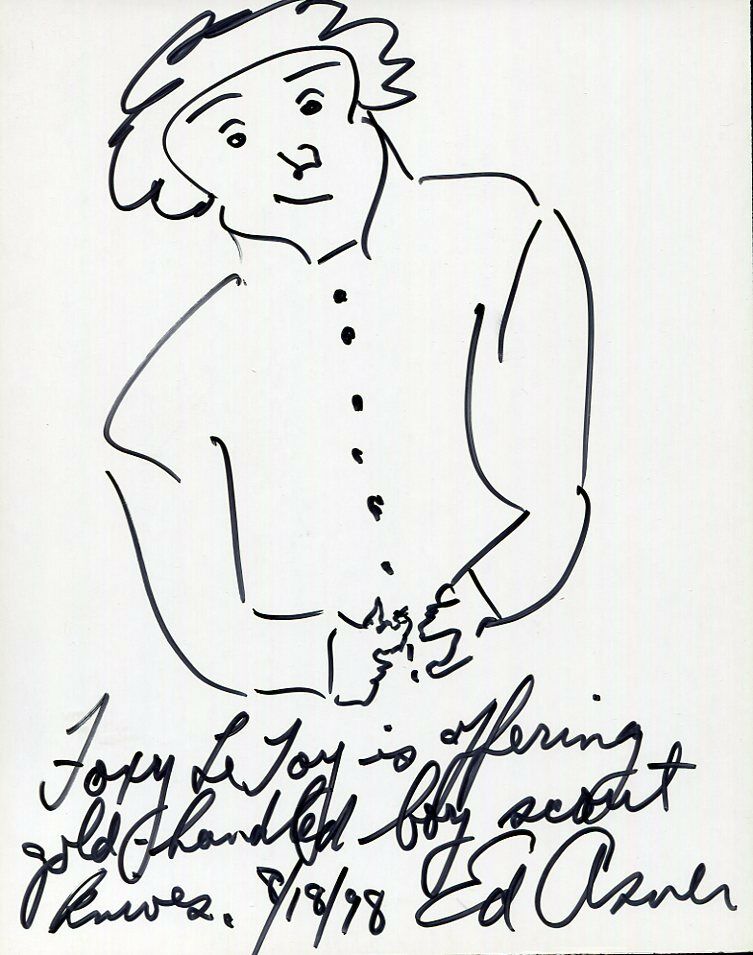 Foxy LeToy is offering
gold-handled boy scout
knives. 8/18/98 Ed Asner